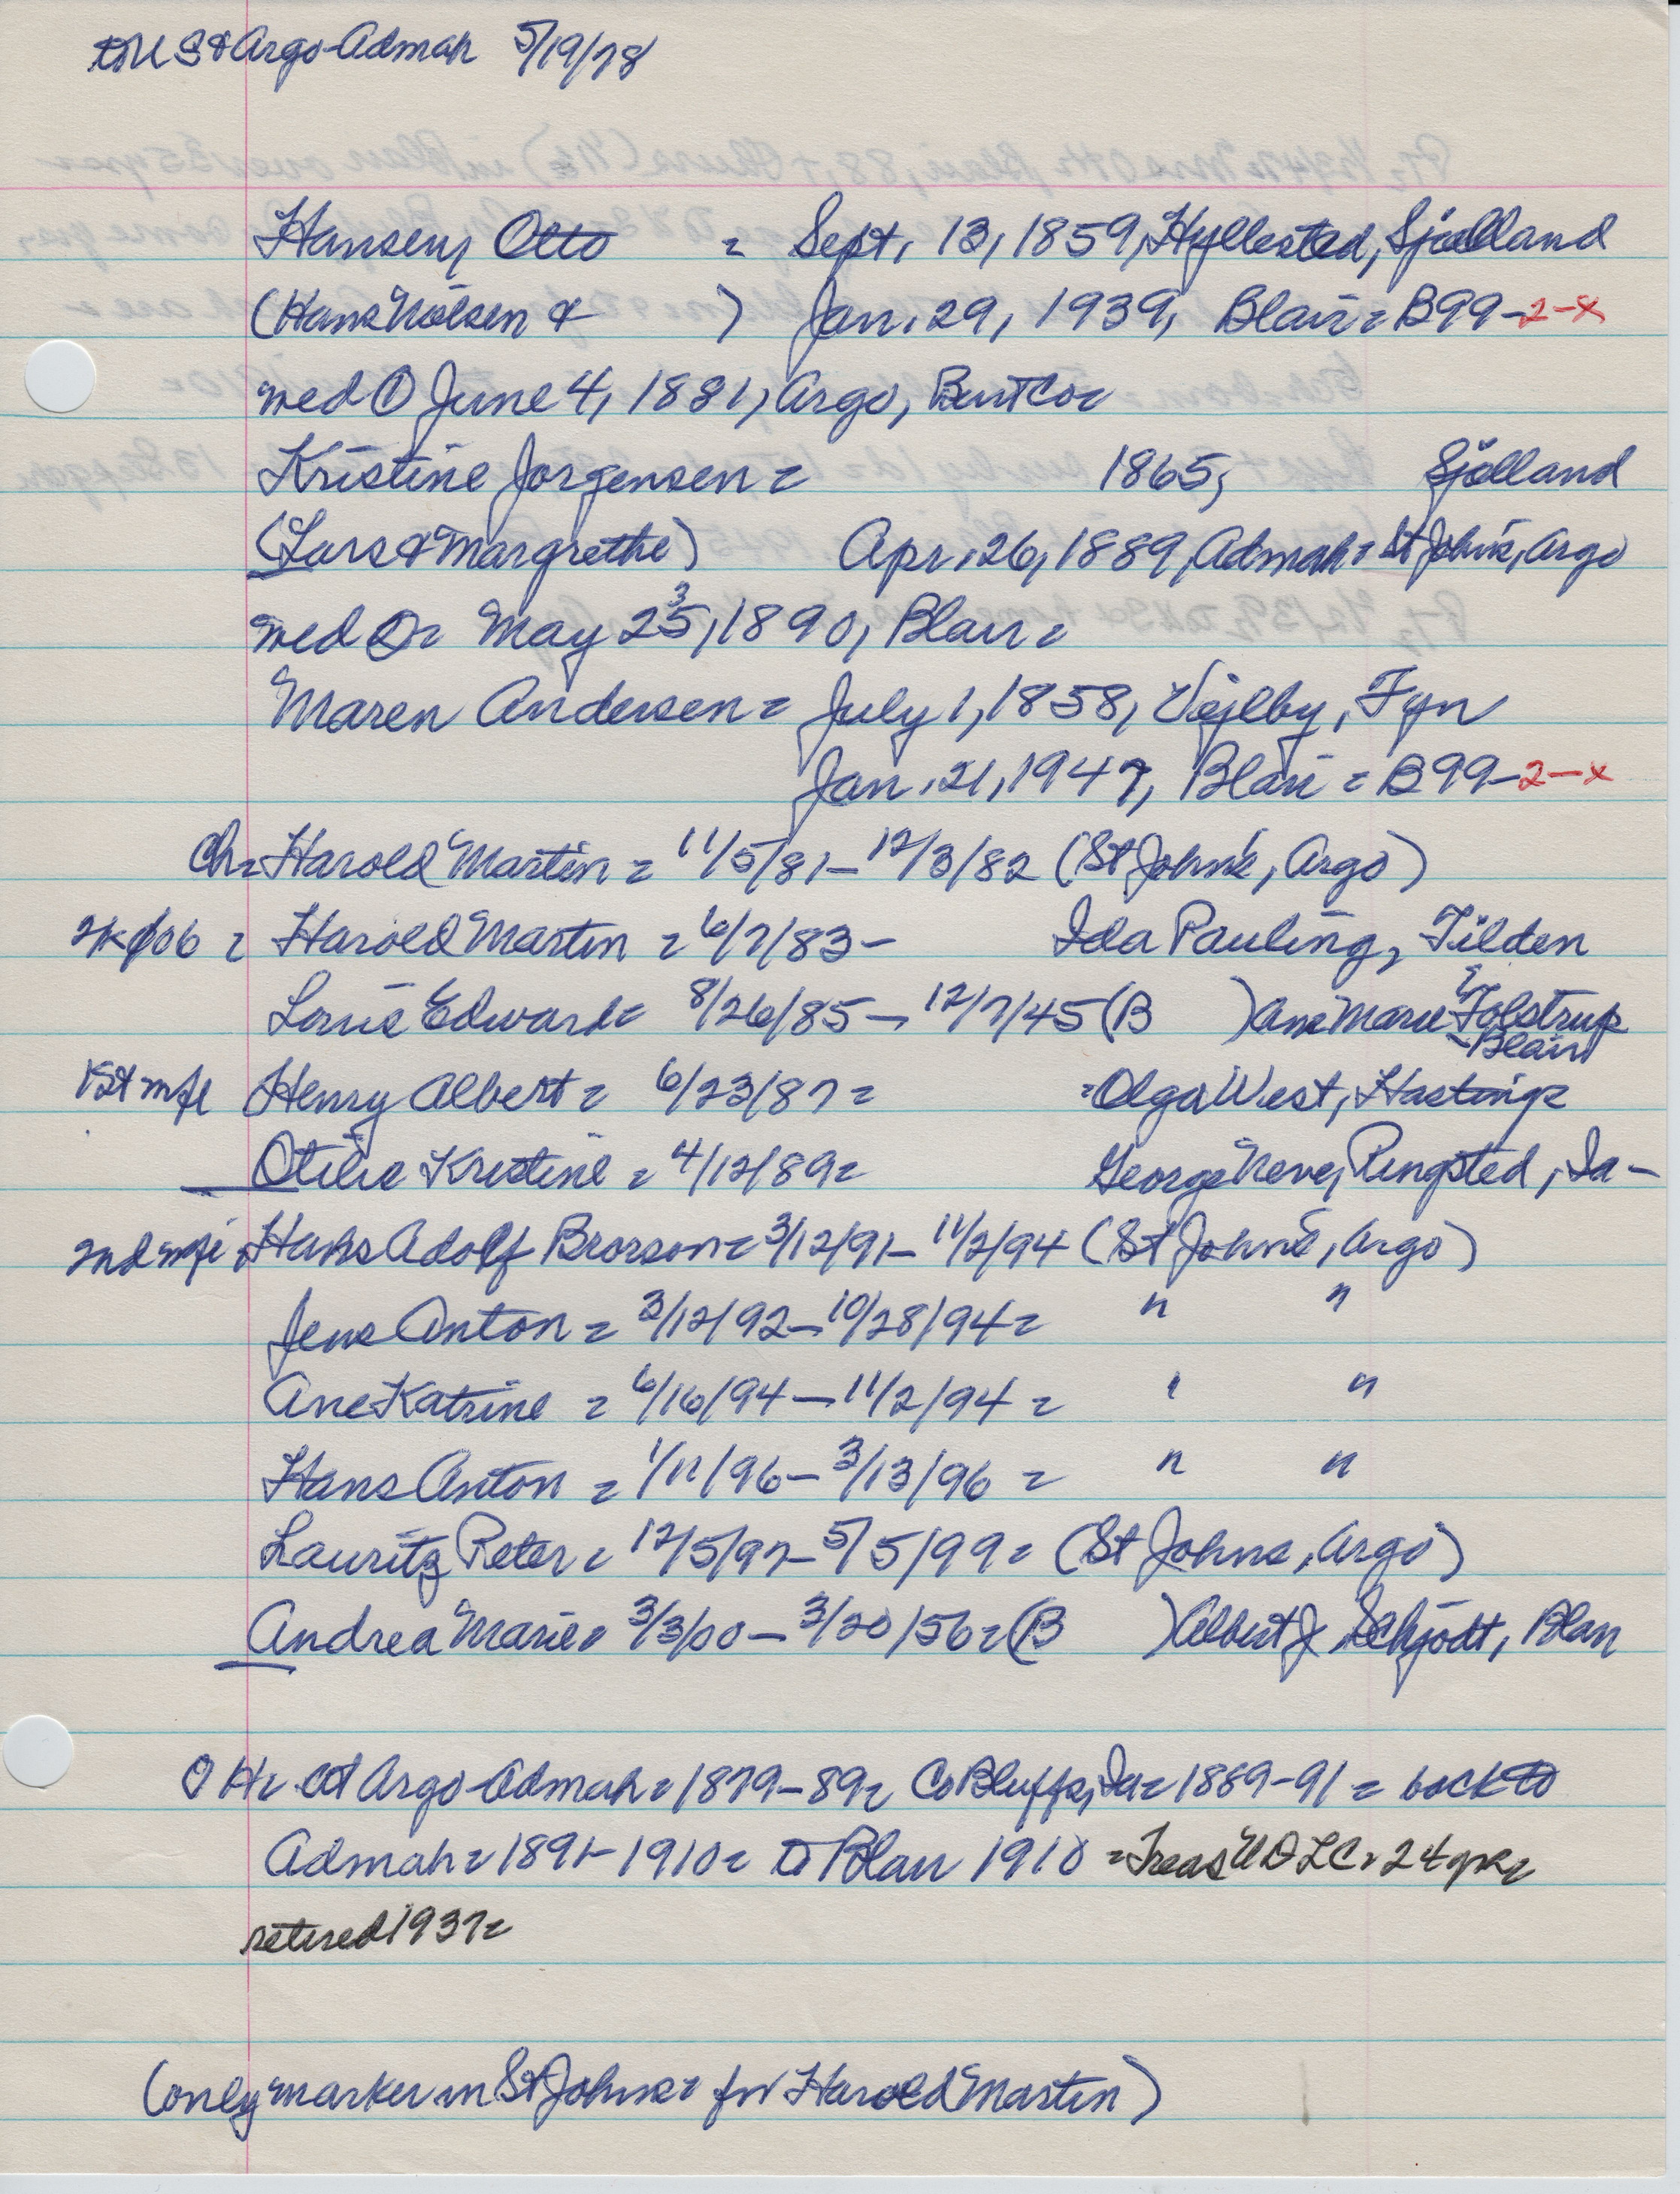 to US & Argo-Admah 5/19/78
Hansen, Otto = Sept. 13, 1859, Hyllested, Sjælland
(Hans Nielsen & ) Jan. 29, 1939, Blair = B99-2-x
wed ① June 4, 1881, Argo, Burt Co =
Kristine Jorgensen = 1865, Sjælland
(Lars & Margrethe) Apr. 26, 1889, Admah = St John's, Argo
wed ② = May 23, 1890, Blair =
Maren Andersen = July 1, 1858, Vejlby, Fyn
Jan. 21, 1947, Blair = B99-2-x
Ch = Harold Martin = 11/5/81 - 12/3/82 (St John's, Argo)
= Harold Martin = 6/7/83 - Ida Pauling, Tilden
Louis Edward = 8/26/85 - 12/7/45 (B ) Ane Marie Tolstrup
- Blair
1st wife Henry Albert = 6/23/87 = = Olga West, Hastings
Otilie Kristine = 4/12/89 = George Neve, Ringsted, Ia -
2nd wife = Hans Adolf Brorson = 3/12/91 - 11/2/94 (St John's, Argo)
Jens Anton = 3/12/92 - 10/28/94 = " "
Ane Katrine = 6/16/94 - 11/2/94 = " "
Hans Anton = 1/11/96 - 3/13/96 = " "
Lauritz Peter = 12/5/97 - 5/5/99 = (St Johns, Argo)
Andrea Marie = 3/3/00 - 3/20/56 = (B ) Albert J Schjodt, Blair
O H = at Argo-Admah = 1879-89 = Co Bluffs, Ia = 1889-91 = back to
Admah = 1891-1910 = to Blair 1910 = Treas UDELC = 24 yrs =
retired 1937 =
(only marker in St Johns = for Harold Martin)